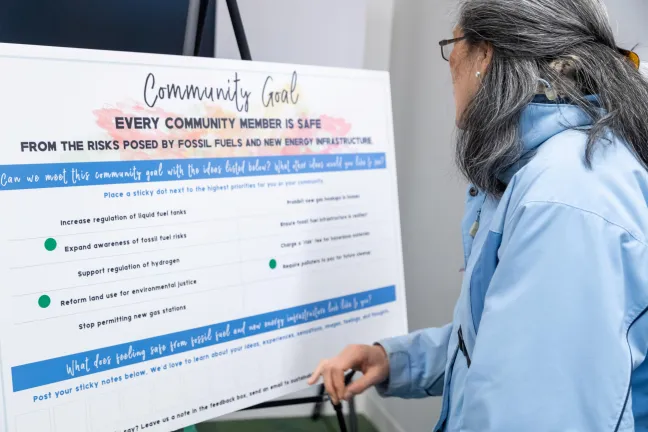 Community Goal
EVERY COMMUNITY MEMBER IS SAFE
FROM THE RISKS POSED BY FOSSIL FUELS AND NEW ENERGY INFRASTRUCTURE.
Can we meet this community goal with the ideas listed below? What other ideas would you like to see?
Place a sticky dot next to the highest priorities for you or your community.
Increase regulation of liquid fuel tanks
Expand awareness of fossil fuel risks
Support regulation of hydrogen
Reform land use for environmental justice
Stop permitting new gas stations
Prohibit new gas hookups in homes
Ensure fossil fuel infrastructure is resilient
Charge a "risk" fee for hazardous materials
Require polluters to pay for future cleanup
What does feeling safe from fossil fuel and new energy infrastructure look like to you?
Post your sticky notes below. We'd love to learn about your ideas, experiences, sensations, images, feelings, and thoughts.
say? Leave us a note in the feedback box, send an email to